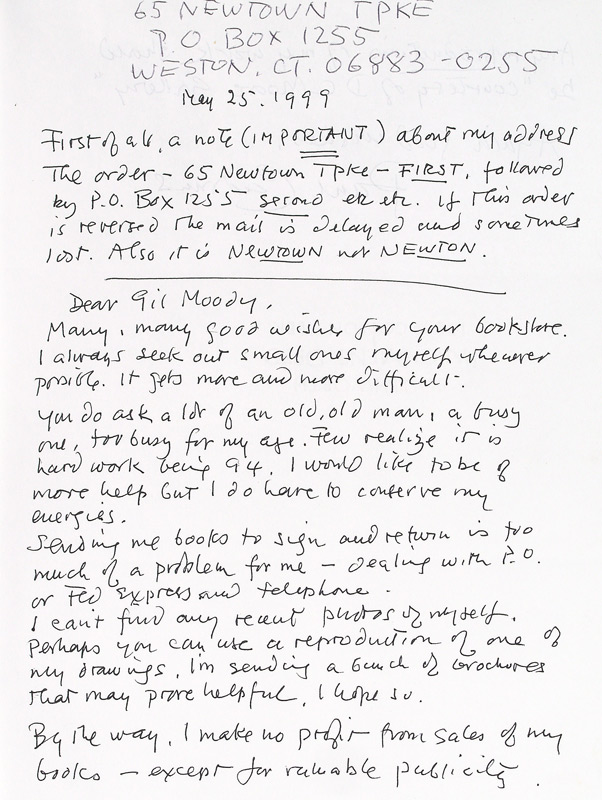 65 NEWTOWN TPKE
P.O. BOX 1255
WESTON, CT. 06883-0255
May 25. 1999
First of all, a note (IMPORTANT) about my address
The order - 65 Newtown TPke - FIRST, followed
by P.O. Box 1255 second etc etc. if this order
is reversed the mail is delayed and sometimes
lost. Also it is NEWTOWN not NEWTON.
Dear Gil Moody,
Many, many good wishes for your bookstore.
I always seek out small ones myself whenever
possible. It gets more and more difficult.
You do ask a lot of an old, old man, a busy
one, too busy for my age. Few realize it is
hard work being 94. I would like to be of
more help but I do have to conserve my
energies.
Sending me books to sign and return is too
much of a problem for me - dealing with P.O.
or Fed Express and telephone.
I can't find any recent photos of myself.
Perhaps you can use a reproduction of one of
my drawings. I'm sending a bunch of brochures
that may prove helpful, I hope so.
By the way, I make no profit from sales of my
books - except for valuable publicity.